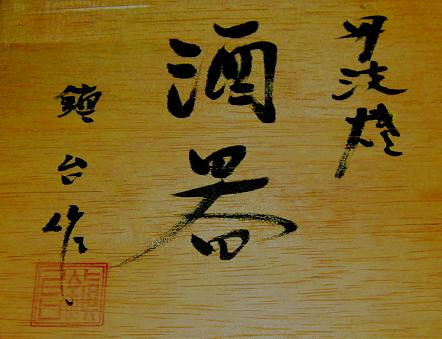 丹波焼
酒器
鎮台作